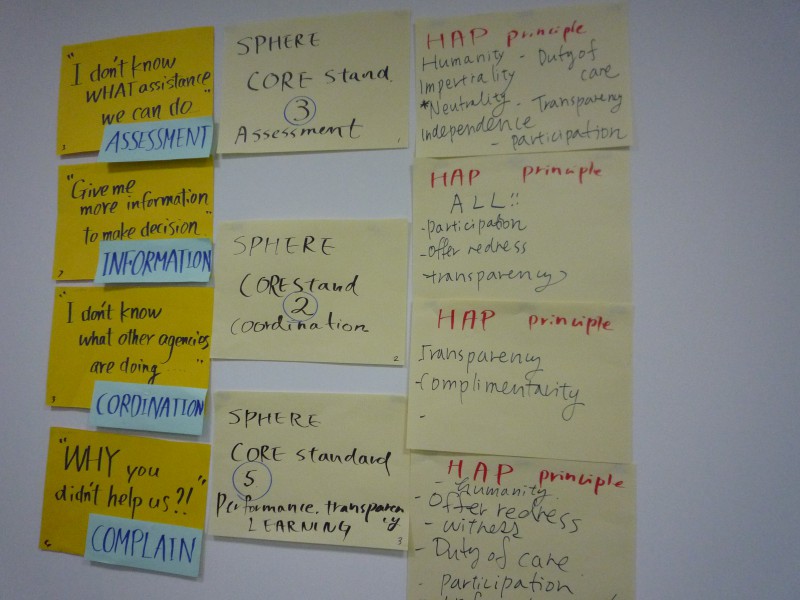 "I don't know
WHAT assistance
we can do"
ASSESSMENT
1
"Give me
more information
to make decision"
INFORMATION
2
"I don't know
what other agencies
are doing....."
CORDINATION
3
"WHY you
didn't help us?!"
COMPLAIN
SPHERE
CORE stand.
3
Assessment
1
SPHERE
CORE stand
2
coordination
2
SPHERE
CORE standard
5
Performance. transparency
LEARNING
3
HAP principle
Humanity - Duty of
Impertriality care
*Neutrality. Transparency
independence
- participation
HAP principle
ALL!!
-participation
-offer redness
-transparency
HAP principle
-Transparency
-Complimentarity
-
HAP principle
- Humanity.
- Offer redness
- witness
- Duty of care
- participation